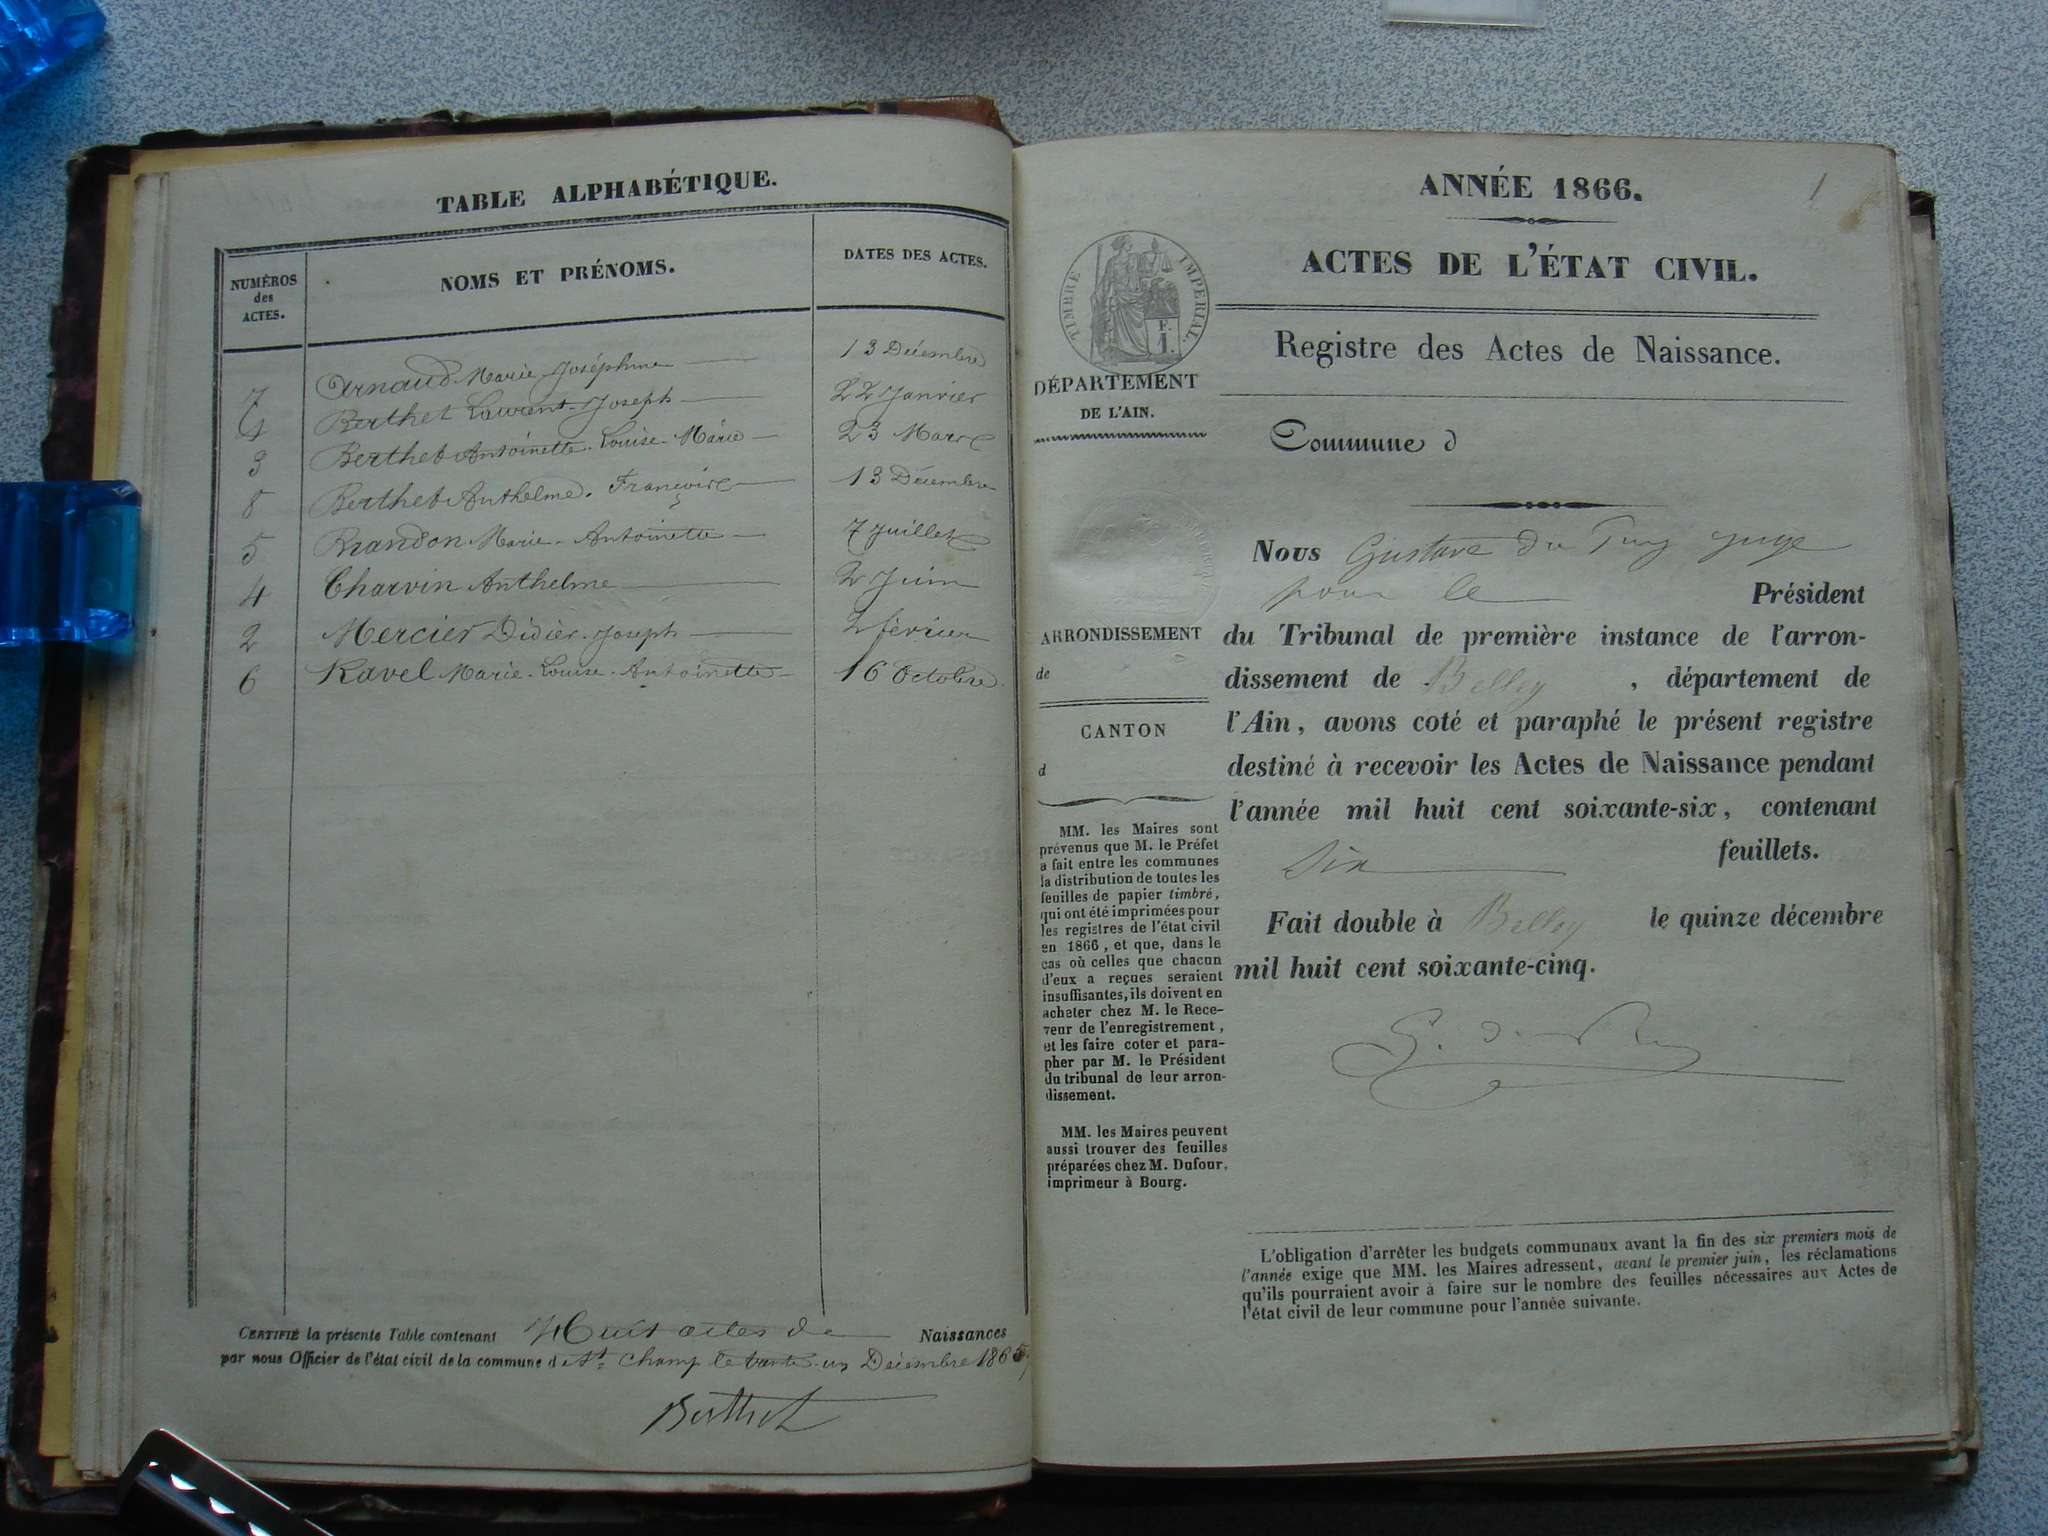 TABLE ALPHABÉTIQUE.
NUMÉROS des ACTES. NOMS ET PRÉNOMS. DATES DES ACTES.
7 Arnaud Marie Joséphine 13 Décembre
1 Berthet Laurent Joseph 22 Janvier
3 Berthet Antoinette Louise Marie 23 Mars
8 Berthet Anthelme François 13 Décembre
5 Brandon Marie Antoinette 7 Juillet
4 Charvin Anthelme 2 Juin
2 Mercier Didier Joseph 2 février
6 Ravel Marie Louise Antoinette 16 Octobre
CERTIFIÉ la présente Table contenant Huit actes de Naissances
par nous Officier de l'état civil de la commune d St Champ le trente un Décembre 1865
Berthet
1
ANNÉE 1866.
ACTES DE L'ÉTAT CIVIL.
Registre des Actes de Naissance.
TIMBRE IMPÉRIAL.
DÉPARTEMENT
DE L'AIN.
Commune d
Nous Gustave du Puy juge
pour le Président
du Tribunal de première instance de l'arron-
dissement de Belley, département de
l'Ain, avons coté et paraphé le présent registre
destiné à recevoir les Actes de Naissance pendant
l'année mil huit cent soixante-six, contenant
six feuillets.
Fait double à Belley le quinze décembre
mil huit cent soixante-cinq.
G. du Puy
ARRONDISSEMENT
de
CANTON
d
MM. les Maires sont
prévenus que M. le Préfet
a fait entre les communes
la distribution de toutes les
feuilles de papier timbré,
qui ont été imprimées pour
les registres de l'état civil
en 1866, et que, dans le
cas où celles que chacun
d'eux a reçues seraient
insuffisantes, ils doivent en
acheter chez M. le Rece-
veur de l'enregistrement,
et les faire coter et para-
pher par M. le Président
du tribunal de leur arron-
dissement.
MM. les Maires peuvent
aussi trouver des feuilles
préparées chez M. Dufour,
imprimeur à Bourg.
L'obligation d'arrêter les budgets communaux avant la fin des six premiers mois de
l'année exige que MM. les Maires adressent, avant le premier juin, les réclamations
qu'ils pourraient avoir à faire sur le nombre des feuilles nécessaires aux Actes de
l'état civil de leur commune pour l'année suivante.